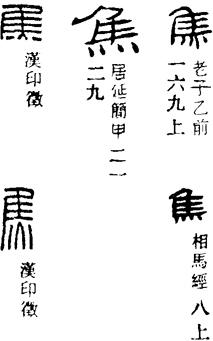 焦
老子乙前
一六九上
焦
居延簡甲二一
二九
焦
漢印徵
焦
相馬經八上
焦
漢印徵